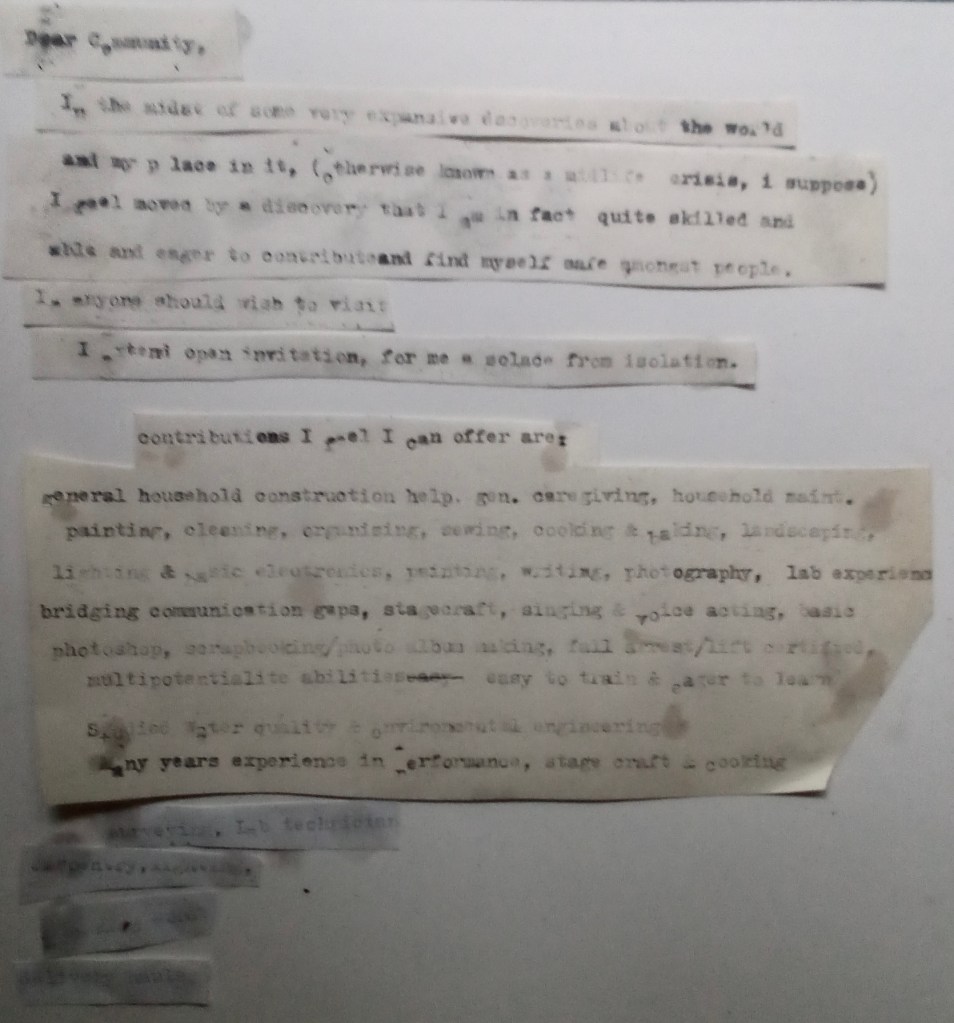 Dear Community,
In the midst of some very expansive discoveries about the world
and my p lace in it, (otherwise known as a midlife crisis, i suppose)
I feel moved by a discovery that I am in fact quite skilled and
able and eager to contributeand find myself safe amongst people.
If anyone should wish to visit
I extend open invitation, for me a solace from isolation.
contributions I feel I can offer are:
general household construction help. gen. caregiving, household maint.
painting, cleaning, organizing, sewing, cooking & baking, landscaping,
lighting & basic electronics, painting, writing, photography, lab experienc
bridging communication gaps, stagecraft, singing & voice acting, basic
photoshop, scrapbooking/photo album making, fall arrest/lift certified,
multipotentialite abilities easy to train & eager to learn
Studied Water quality & environmental engineering
Many years experience in performance, stage craft & cooking
surveying, Lab technician
carpentry,
delivery